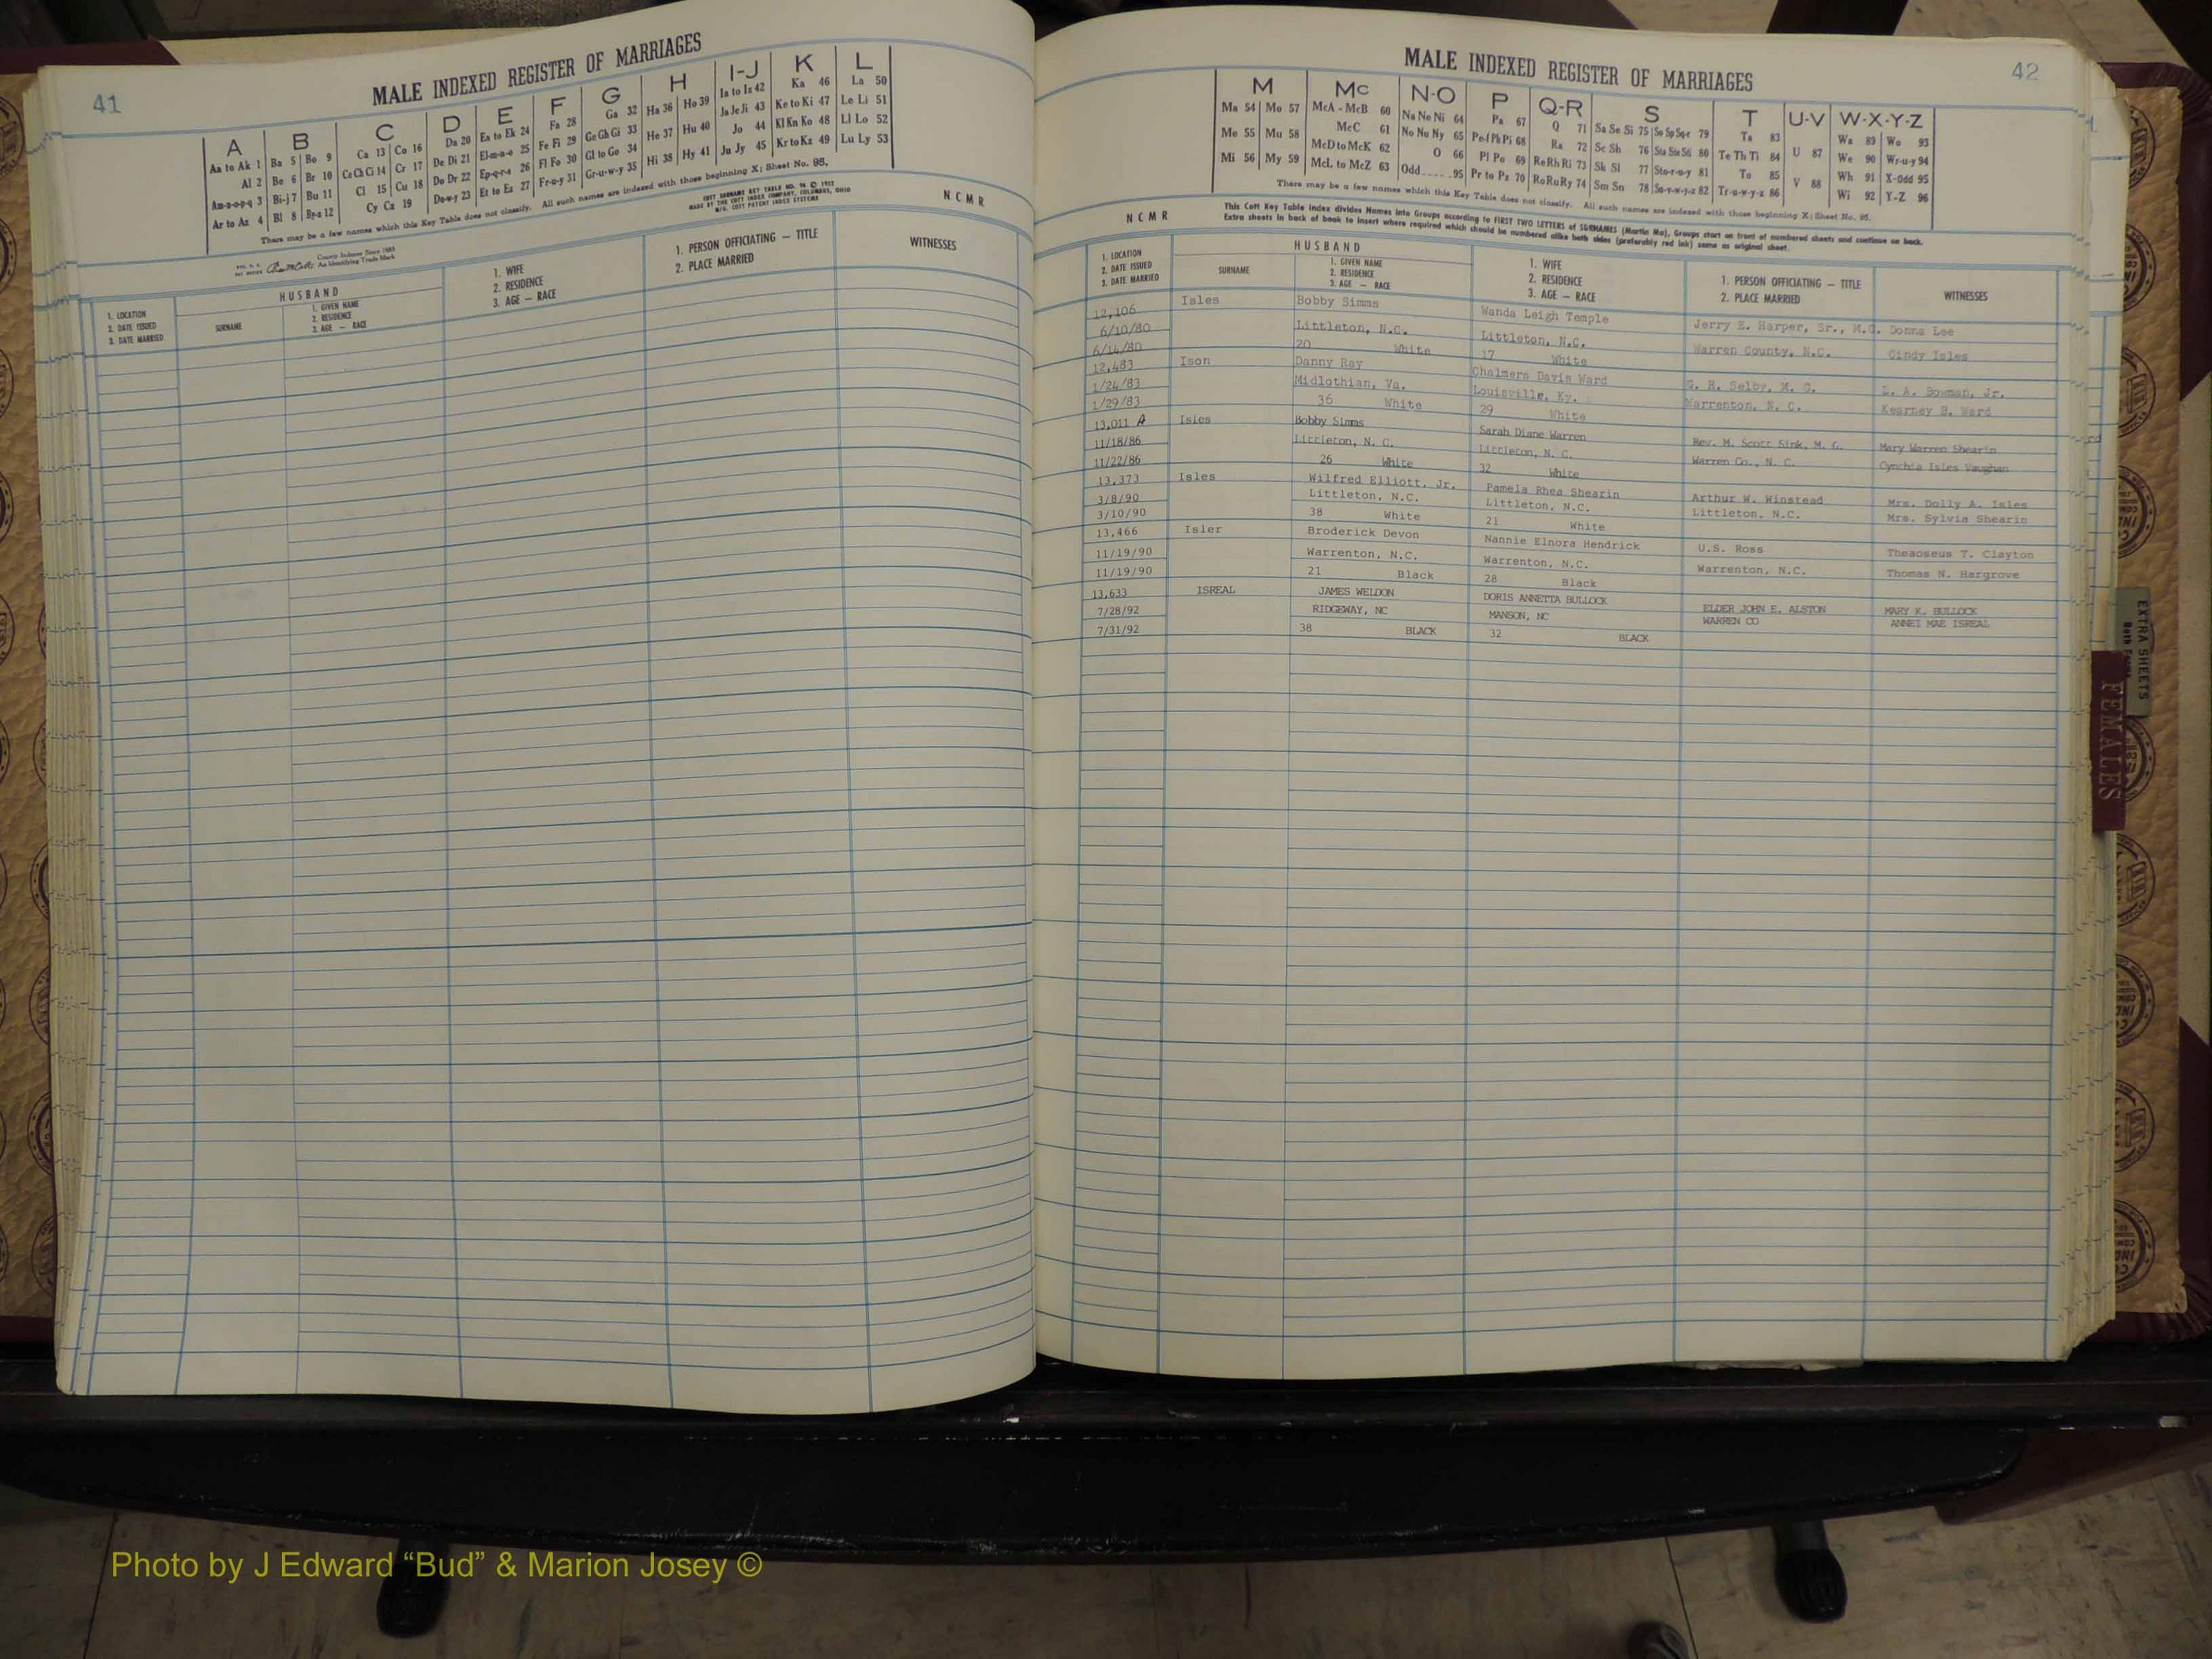 41
MALE INDEXED REGISTER OF MARRIAGES
A B C D E F G H I-J K L
Aa to Ak 1 Ba 5 Bo 9 Ca 13 Co 16 Da 20 Ea to Ek 24 Fa 28 Ga 32 Ha 36 Ho 39 Ia to Iz 42 Ka 46 La 50
Al 2 Be 6 Br 10 Ce Ch Ci 14 Cr 17 De Di 21 El-m-n-o 25 Fe Fi 29 Ge Gh Gi 33 He 37 Hu 40 Ja Je Ji 43 Ke to Ki 47 Le Li 51
Am-n-o-p-q 3 Bi-j 7 Bu 11 Cl 15 Cu 18 Do Dr 22 Ep-q-r-s 26 Fl Fo 30 Gl to Go 34 Hi 38 Hy 41 Jo 44 Kl Kn Ko 48 Ll Lo 52
Ar to Az 4 Bl 8 By-z 12 Cy Cz 19 Du-w-y 23 Et to Ez 27 Fr-u-y 31 Gr-u-w-y 35 Ju Jy 45 Kr to Kz 49 Lu Ly 53
There may be a few names which this Key Table does not classify. All such names are indexed with those beginning X; Sheet No. 95.
COTT SURNAME KEY TABLE NO. 96 © 1952
MADE BY THE COTT INDEX COMPANY, COLUMBUS, OHIO
MFG. COTT PATENT INDEX SYSTEMS
N C M R
County Indexes Since 1888
An Identifying Trade Mark
1. LOCATION
2. DATE ISSUED
3. DATE MARRIED
HUSBAND
SURNAME
1. GIVEN NAME
2. RESIDENCE
3. AGE — RACE
1. WIFE
2. RESIDENCE
3. AGE — RACE
1. PERSON OFFICIATING — TITLE
2. PLACE MARRIED
WITNESSES
MALE INDEXED REGISTER OF MARRIAGES
42
M Mc N-O P Q-R S T U-V W-X-Y-Z
Ma 54 Mo 57 McA - McB 60 Na Ne Ni 64 Pa 67 Q 71 Sa Se Si 75 So Sp Sq-r 79 Ta 83 U 87 Wa 89 Wo 93
Me 55 Mu 58 McC 61 No Nu Ny 65 Pe-f Ph Pi 68 Ra 72 Sc Sh 76 Sta Ste Sti 80 Te Th Ti 84 V 88 We 90 Wr-u-y 94
Mi 56 My 59 McD to McK 62 O 66 Pl Po 69 Re Rh Ri 73 Sk Sl 77 Sto-r-u-y 81 To 85 Wh 91 X-Odd 95
McL to McZ 63 Odd 95 Pr to Pz 70 Ro Ru Ry 74 Sm Sn 78 Su-v-w-y-z 82 Tr-u-w-y-z 86 Wi 92 Y-Z 96
There may be a few names which this Key Table does not classify. All such names are indexed with those beginning X; Sheet No. 95.
N C M R
This Cott Key Table Index divides Names into Groups according to FIRST TWO LETTERS of SURNAMES (Martin Ma), Groups start on front of numbered sheets and continue on back.
Extra sheets in back of book to insert where required which should be numbered alike both sides (preferably red ink) same as original sheet.
1. LOCATION
2. DATE ISSUED
3. DATE MARRIED
HUSBAND
SURNAME
1. GIVEN NAME
2. RESIDENCE
3. AGE — RACE
1. WIFE
2. RESIDENCE
3. AGE — RACE
1. PERSON OFFICIATING — TITLE
2. PLACE MARRIED
WITNESSES
12,106 Isles Bobby Simms Wanda Leigh Temple Jerry E. Harper, Sr., M.G. Donna Lee
6/10/80 Littleton, N.C. Littleton, N.C. Warren County, N.C. Cindy Isles
6/14/80 20 White 17 White
12,483 Ison Danny Ray Chalmers Davis Ward G. R. Selby, M. G. L. A. Bowman, Jr.
1/24/83 Midlothian, Va. Louisville, Ky. Warrenton, N. C. Kearney B. Ward
1/29/83 36 White 29 White
13,011 A Isles Bobby Simms Sarah Diane Warren Rev. M. Scott Sink, M. G. Mary Warren Shearin
11/18/86 Littleton, N. C. Littleton, N. C. Warren Co., N. C. Cynthia Isles Vaughan
11/22/86 26 White 32 White
13,373 Isles Wilfred Elliott, Jr. Pamela Rhea Shearin Arthur W. Winstead Mrs. Dolly A. Isles
3/8/90 Littleton, N.C. Littleton, N.C. Littleton, N.C. Mrs. Sylvia Shearin
3/10/90 38 White 21 White
13,466 Isler Broderick Devon Nannie Elnora Hendrick U.S. Ross Theaoseus T. Clayton
11/19/90 Warrenton, N.C. Warrenton, N.C. Warrenton, N.C. Thomas N. Hargrove
11/19/90 21 Black 28 Black
13,633 ISREAL JAMES WELDON DORIS ANNETTA BULLOCK ELDER JOHN E. ALSTON MARY K. BULLOCK
7/28/92 RIDGEWAY, NC MANSON, NC WARREN CO ANNEI MAE ISREAL
7/31/92 38 BLACK 32 BLACK
EXTRA SHEETS
FEMALES
Photo by J Edward “Bud” & Marion Josey ©